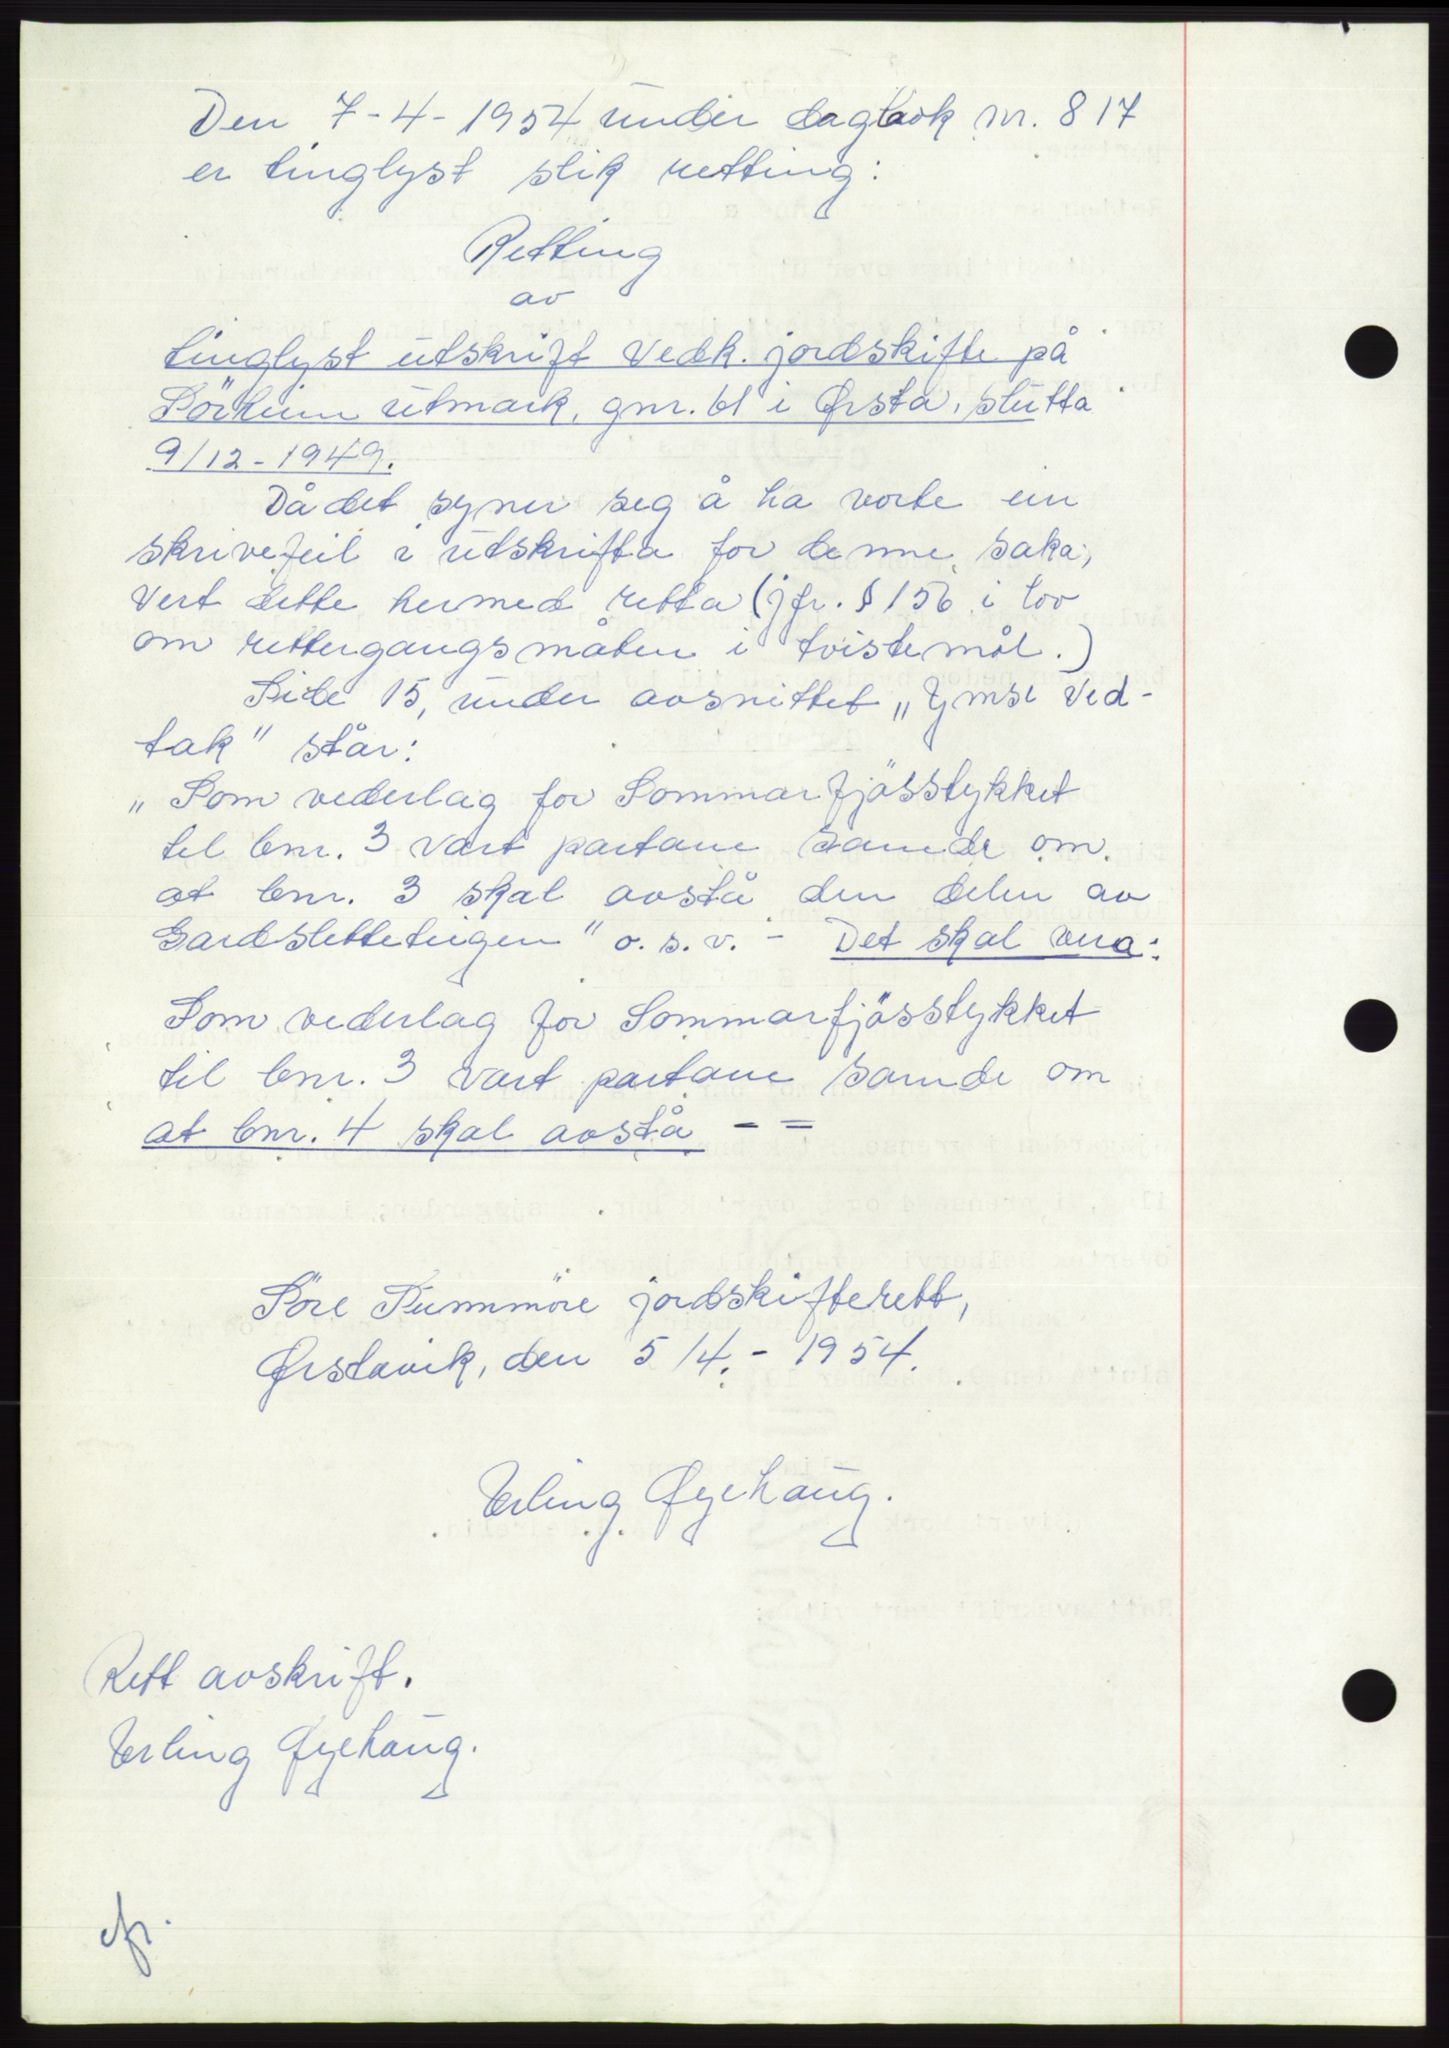 Den 7-4-1954 under dagbok nr. 817
er tinglyst slik retting:
Retting
av
tinglyst utskrift vedk. jordskifte på
Sörheim utmark, gnr. 61 i Ørsta, slutta
9/12-1949.
Då det syner seg å ha vorte ein
skrivefeil i utskrifta for denne saka,
vert dette hermed retta (jfr. § 156 i lov
om rettergangsmåten i tvistemål.)
Side 15, under avsnittet „Ymse ved-
tak" står:
„Som vederlag for Sommarfjösstykket
til bnr. 3 vart partane samde om
at bnr. 3 skal avstå den delen av
Gardsletteteigen" o. s. v. - Det skal vera:
Som vederlag for Sommarfjösstykket
til bnr. 3 vart partane samde om
at bnr. 4 skal avstå - =
Söre Sunnmöre jordskifterett,
Ørstavik, den 5/4.-1954.
Erling Øyehaug.
Rett avskrift.
Erling Øyehaug.